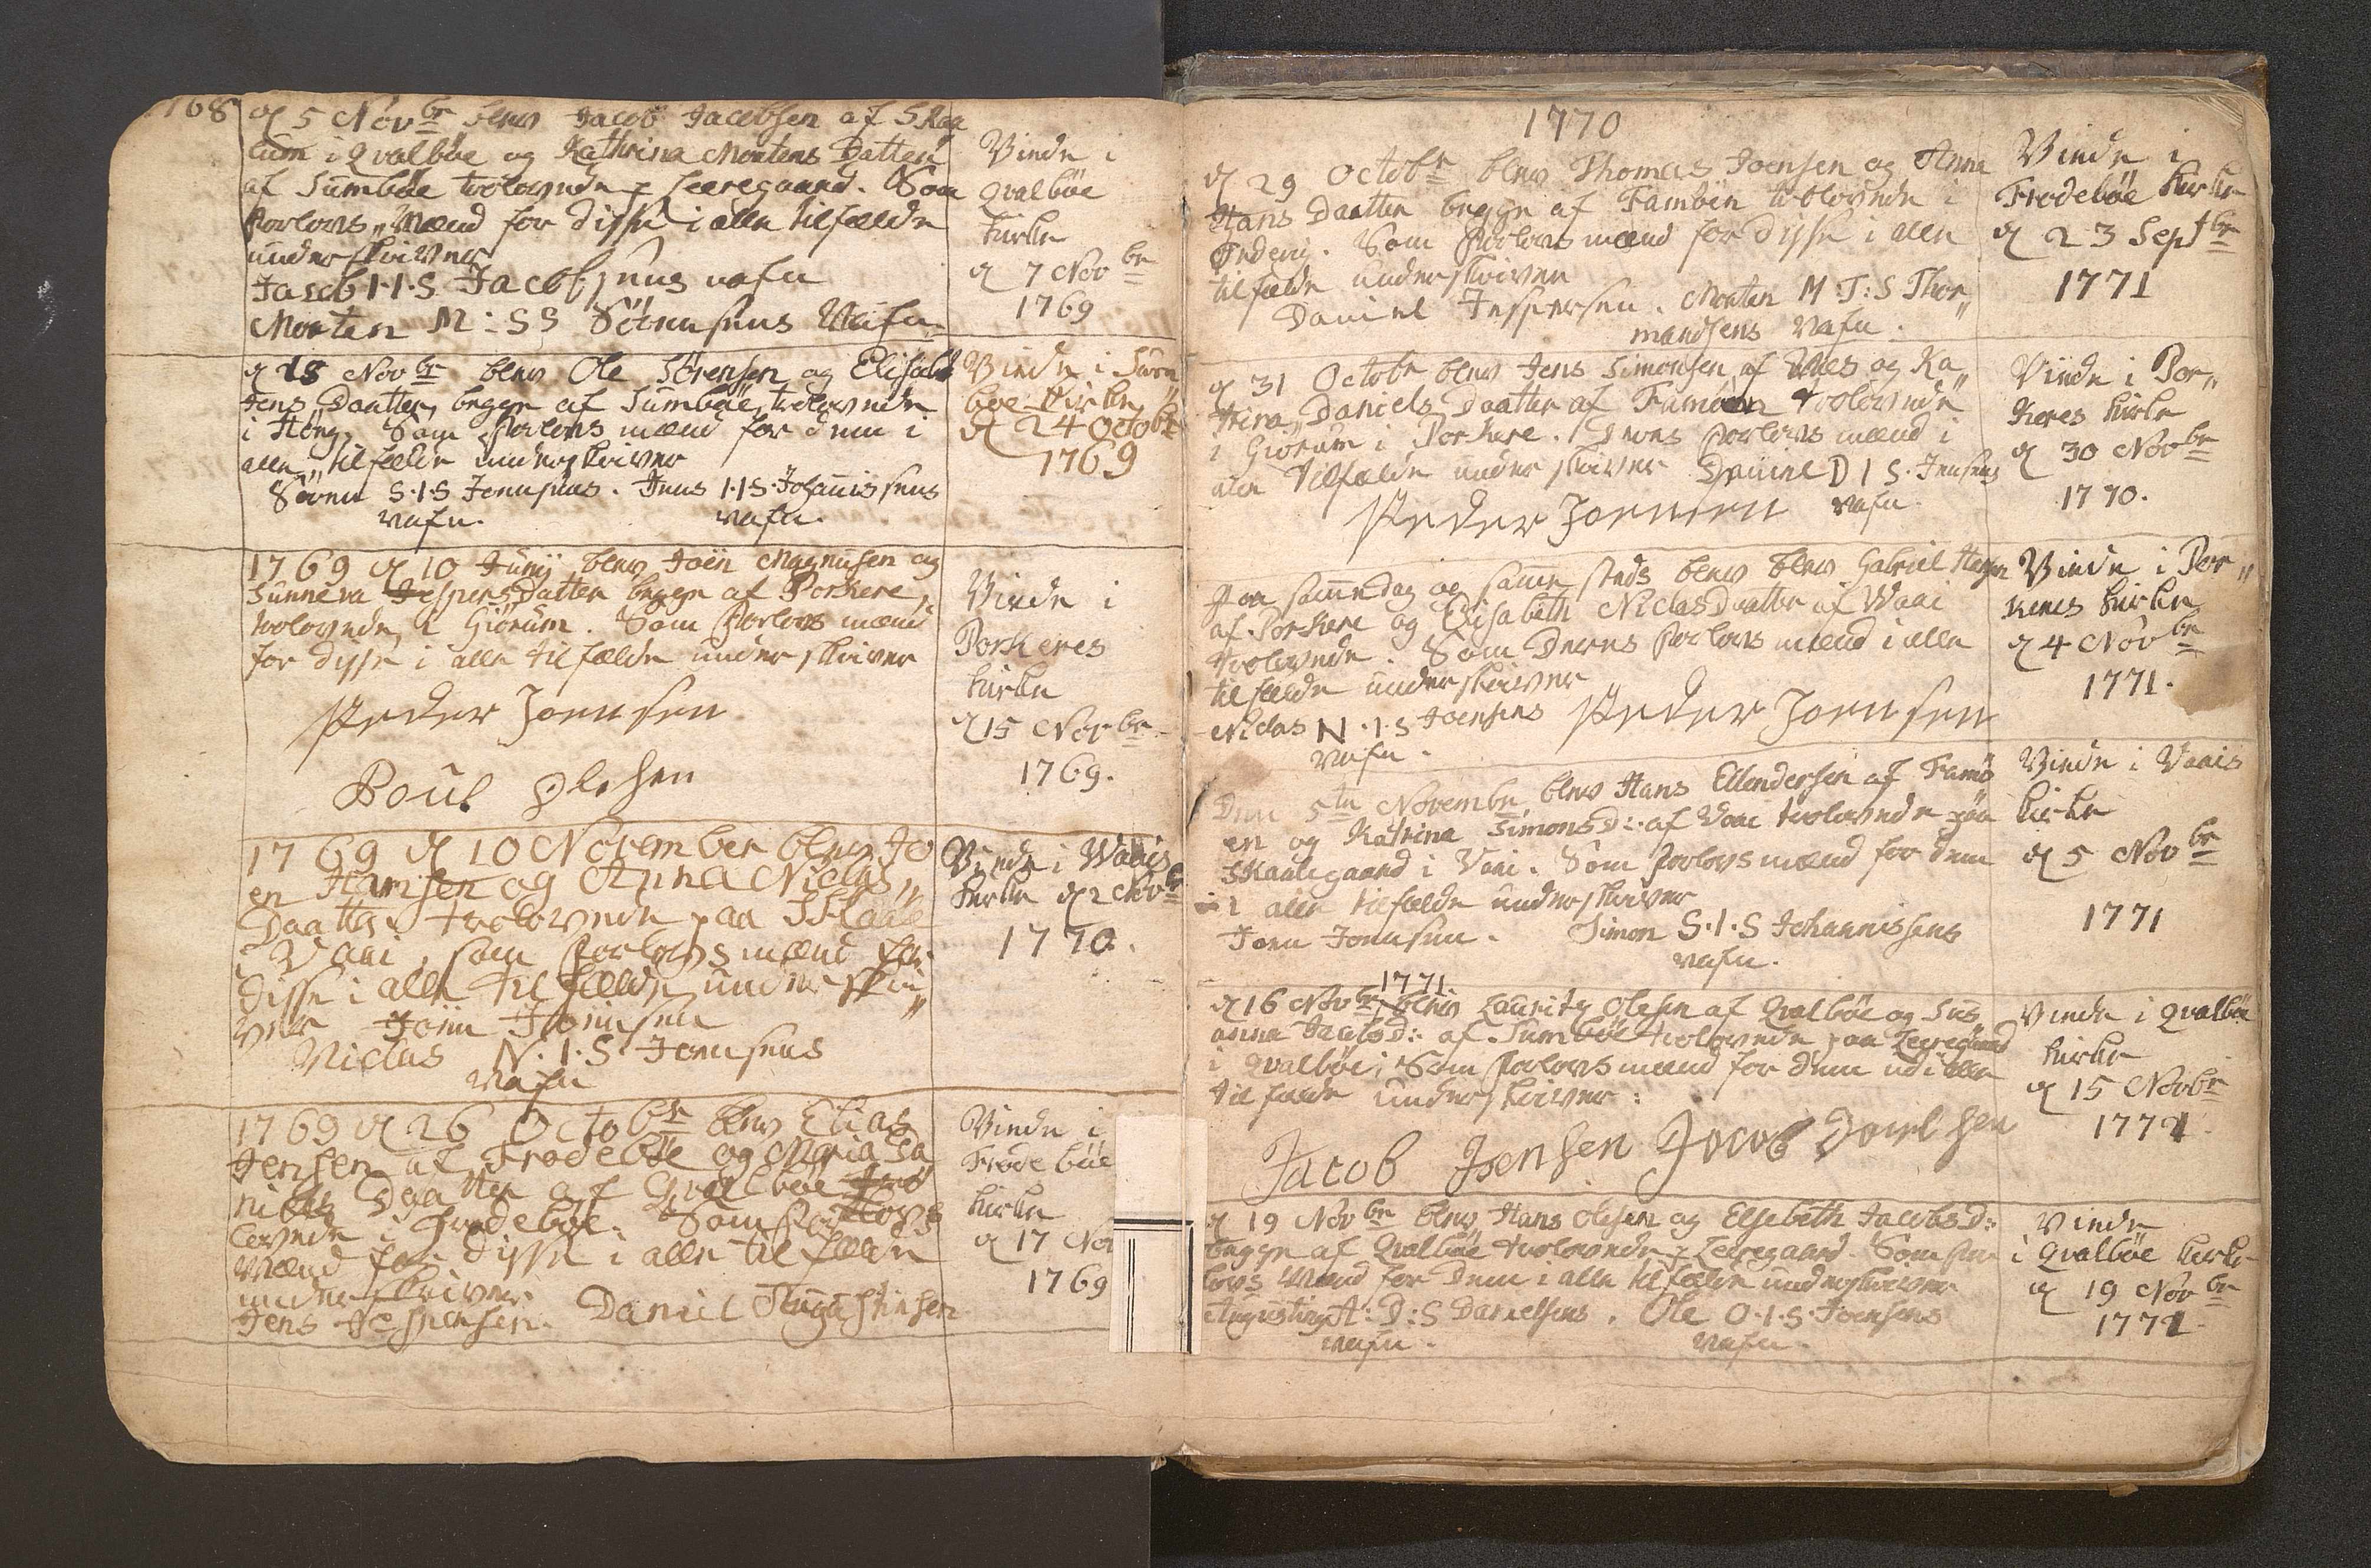 168
d 5 Novbr blev Jacob Jacobsen af Skaa
lum i Qvalbøe og Kathrina Mortens Datter
af Sumbøe trolovede p Leeregaard. Som
Forlovs„Mænd for disse i alle tilfælde
underskriver
Jacob I.I.S Jacobsens nafn
Morten M:SS Sörensens Nafn
Viede i
Qvalbøe
kirke
d 7 Novbr
1769
d 18 Novbr blev Ole Sørensen og Elisabt
Jens Daatter, begge af Sumbøe, trolovede
i Høng. Som Forlovs mænd for dem i
alle„tilfælde underskriver
Søren S.I.S Joensens. Jens I.I.S. Johannissens
nafn. nafn.
Viede i Sum„
bøe kirke
d 24 Octobr
1769
1769 d 10 Junij blev Joen Magnusen og
Sunneva Jespers Datter begge af Porkere,
trolovede i Giørum. Som Forlovs mænd
for disse i alle tilfælde underskriver
Peder Joensen
Poul Olesen
Viede i
Porkeres
kirke
d 15 Novbr
1769.
1769 d 10 November blev Jo
en Hansen og Anna Niclas„
Daatter trolovede paa Skaale
i Vaai, som Forlovs mænd for
disse i alle tilfælde underskri„
ver Joen Joensen
Niclas N.I.S. Joensens
nafn
Viede i Waais
kirke d 2 Novbr
1770.
1769 d 26 Octobr blev Elias
Jensen af Frodebøe og Maria Da
niels Daatter af Qvalbøe tro
lovede i Frodebøe. Som Forlovs
Mænd for disse i alle tilfælde
underskriver
Jens Jespersen. Daniel Augustinsen
Viede i
Frodebøe
kirke
d 17 Nov
1769
1770
d 29 Octobr blev Thomas Joensen og Anna
Hans Daatter begge af Famöen trolovede i
Ørdevig. Som Forlovs mænd for disse i alle
tilfælde underskriver
Daniel Jespersen. Morten M:T:S Thor„
mandsens nafn.
Viede i
Frodebøe kirke
d 23 Septbr
1771
d 31 Octobr blev Jens Simonsen af Waes og Ka„
trina Daniels Daatter af Famöen trolovede
i Giørum i Porkere. Deres Forlovs mænd i
alle Tilfælde underskriver Daniel D I S. Jensens
Peder Joensen nafn
Viede i Por„
keres kirke
d 30 Novbr
1770.
Paa samme dag og samme steds blev blev Gabriel Hansen
af Porkere og Elisabeth Niclas Daatter af Waai
trolovede. Som Deres Forlovs mænd i alle
tilfælde underskriver
Niclas N.I.S Joensens Peder Joensen
nafn.
Viede i Por„
keres kirke
d 4 Novbr
1771.
Den 5te Novembr blev Hans Ellendersen af Famö
en og Katrina Simons D: af Vaai trolovede paa
Skaalegaard i Vaai. Som Forlovs mænd for dem
i alle tilfælde underskriver
Joen Joensen. Simon S.I.S Johannissens
nafn.
Viede i Vaais
kirke
d 5 Novbr
1771
1771.
d 16 Novbr blev Lauritz Olesen af Qvalbøe og Sus
anna Jacobs D: af Sumbøe trolovede paa Leeregaard
i Qvalbøe; Som Forlovs mænd for dem udi alle
tilfælde underskriver:
Jacob Joensen Jacob Poulsen
Viede i Qvalbøe
kirke
d 15 Novbr
1771.
d 19 Novbr blev Hans Olesen og Elsebeth Jacobs D:
begge af Qvalbøe trolovede p Leeregaard. Som For
lovs Mænd for Dem i alle tilfælde underskriver
Augustinus A:D:S Danielsens. Ole O.I.S. Joensens
nafn. nafn.
Viede
i Qvalbøe kirke
d 19 Novbr
1771.